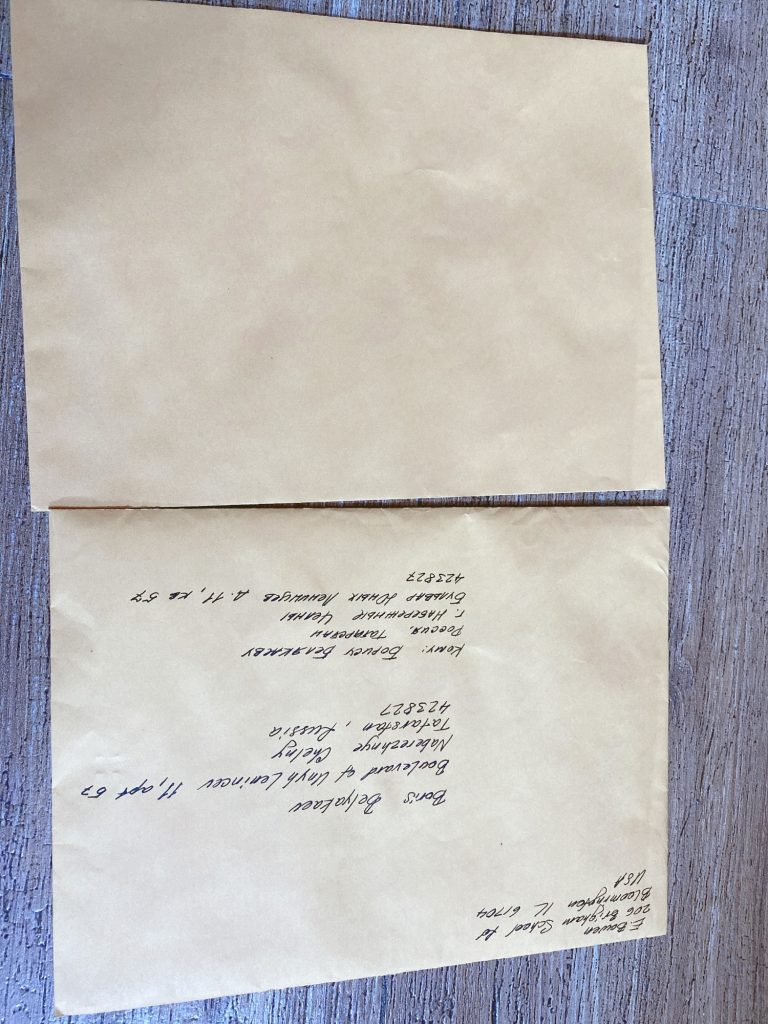 E. Bowen
206 Brigham School Rd
Bloomington IL 61704
USA
Boris Belyakaev
Boulevard of Unyh Lenincev 11, apt 57
Naberezhnye Chelny
Tatarstan, Russia
423827
Кому: Борису Белякаеву
Россия, Татарстан
г. Набережные Челны
Бульвар Юных Ленинцев д. 11, кв 57
423827